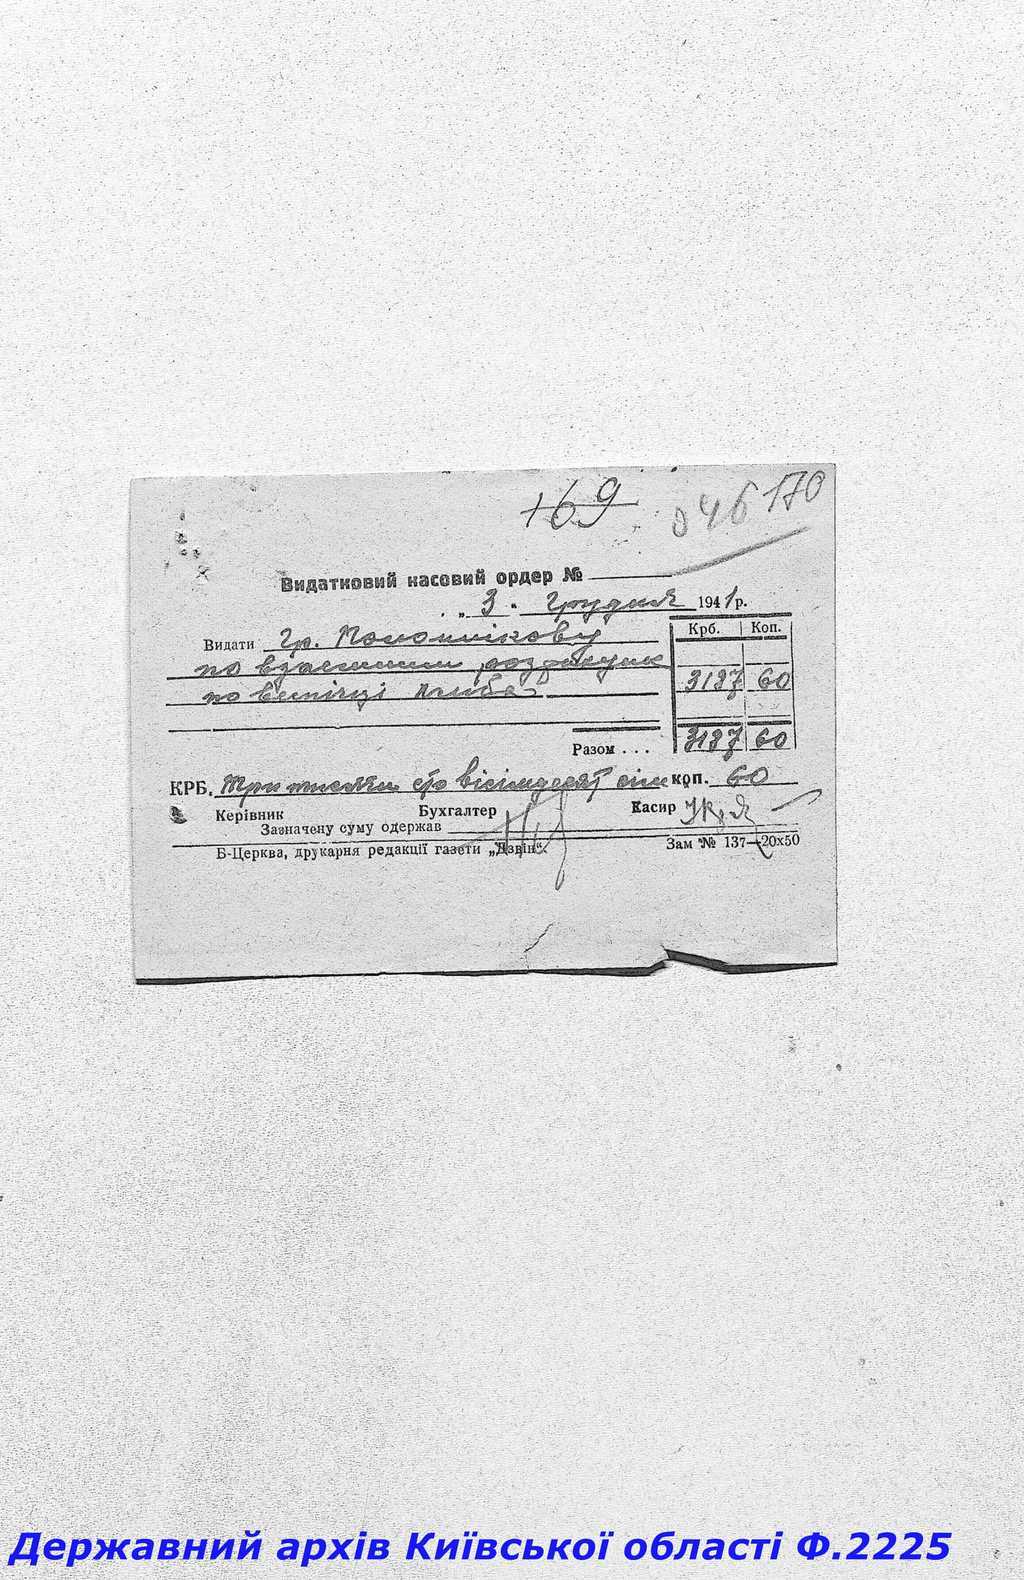 169
346 170
Видатковий касовий ордер №
„ 3 " Грудня 1941 р.
Крб. Коп.
Видати Гр. Поломнікову
по взаємним розрахунк
по випічці хліба 3187 60
Разом . . . 3187 60
КРБ. Три тисячи сто вісімдесят сім коп. 60
Керівник Бухгалтер Касир
Зазначену суму одержав
Б-Церква, друкарня редакції газети „Дзвін“. Зам № 137—20х50
Державний архів Київської області Ф.2225